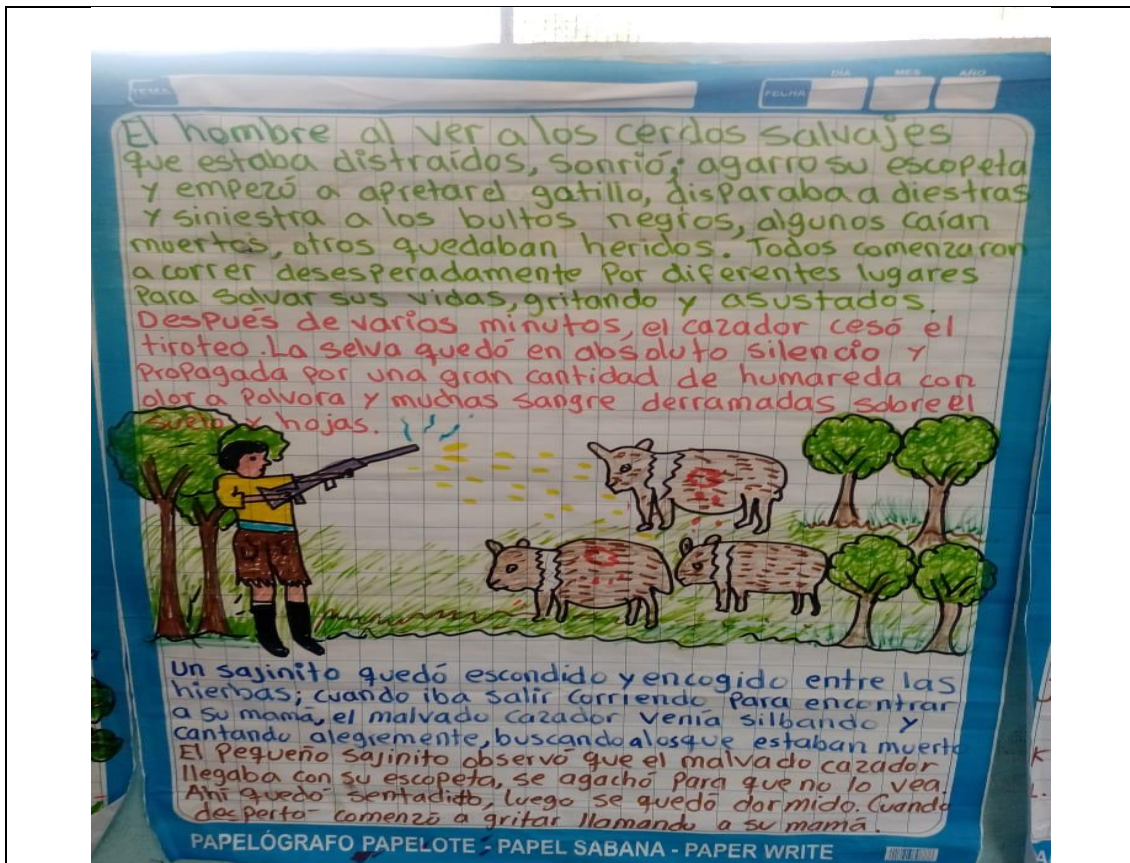 TEMA
FECHA
DÍA
MES
AÑO
El hombre al ver a los cerdos salvajes
que estaba distraídos, sonrió; agarro su escopeta
y empezó a apretar el gatillo, disparaba a diestras
y siniestra a los bultos negros, algunos caían
muertos, otros quedaban heridos. Todos comenzaron
a correr desesperadamente por diferentes lugares
para salvar sus vidas, gritando y asustados.
Después de varios minutos, el cazador cesó el
tiroteo. La selva quedó en absoluto silencio y
propagada por una gran cantidad de humareda con
olor a polvora y muchas sangre derramadas sobre el
suelo y hojas.
Un sajinito quedó escondido y encogido entre las
hierbas; cuando iba salir corriendo para encontrar
a su mamá, el malvado cazador venía silbando y
cantando alegremente, buscando a los que estaban muerto
El pequeño sajinito observó que el malvado cazador
llegaba con su escopeta, se agachó para que no lo vea.
Ahí quedó sentadito, luego se quedó dormido. Cuando
despertó comenzó a gritar llamando a su mamá.
PAPELÓGRAFO PAPELOTE - PAPEL SABANA - PAPER WRITE